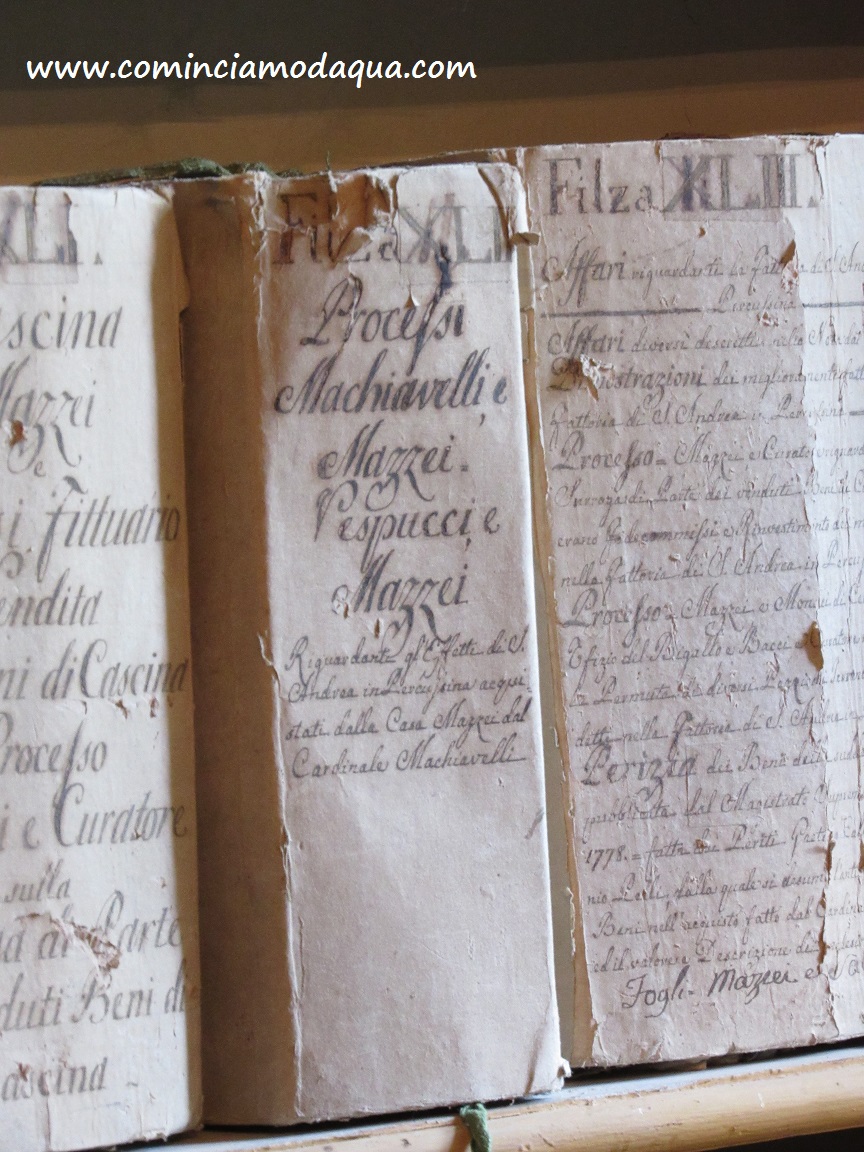 www.cominciamodaqua.com
XLI.
ascina
Mazzei
e
si Fittuario
Vendita
ni di Cascina
Processo
i e Curatore
sulla
ga di Parte
duti Beni di
ascina
Filza XLII
Processi
Machiavelli, e
Mazzei.
Vespucci, e
Mazzei
Riguardanti gl'Effetti di S.
Andrea in Percussina acqui-
stati dalla Casa Mazzei dal
Cardinale Machiavelli
Filza XLIII.
Affari riguardanti la Fattoria di S. And
Percussina
Affari diversi descritti nella Nota del
Dimostrazioni dei miglioramenti fatt
Fattoria di S. Andrea in Percussina
Processo = Mazzei e Curatore riguard
Surroga di Parte dei venduti Beni di C
erano fidecommissi e Rinvestimento di
nella Fattoria di S. Andrea in Percus
Processo = Mazzei e Monte di
Bigallo e Bacci e Curatore
la Permuta di diversi Pezzi
nella Fattoria di S. Andrea
Perizia dei Beni
pubblicata dal Magistrato
1778. = fatta dai Periti
nio dalla quale si desume
Beni nell'acquisto fatto dal Cardina
ed il valore e Descrizione di
Fogli = Mazzei e